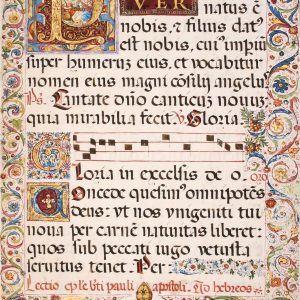 P VER natus ē
nobis, & filius dat⁹
est nobis, cui⁹ impiū
super humeruz eius, et vocabitur
nomen eius magni cōsilij angelus
Ps. Cantate dn̄o canticuz nouuz
quia mirabilia fecit ℣ Gloria
Gloria in excelsis de o. Oro
Concede quesum⁹ omnipotēs
deus: ut nos vnigeniti tui
noua per carnē natiuitas liberet:
quos sub peccati iugo vetusta
seruitus tenet. Per
Lectio ep̄le bti pauli apostoli. Ad hebreos